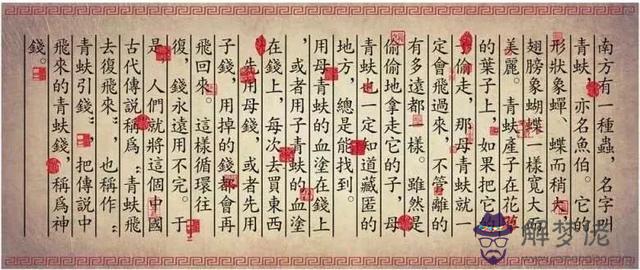 南方有一種蟲，名字叫
青蚨，亦名魚伯。它的
形狀象蟬、蝶而稍大，
翅膀象蝴蝶一樣寬大而
美麗。青蚨產子在花
的葉子上，如果把它
子偷走，那母青蚨就一
定會飛過來，不管離的
有多遠都一樣。雖然是
偷偷地拿走它的子，母
青蚨也一定知道藏匿的
地方，總是能找到。
用母青蚨的血塗在錢上
，或者用子青蚨的血塗
在錢上，每次去買東西
，先用母錢，或者先用
子錢，用掉的錢都會再
飛回來。這樣循環往
復，錢永遠用不完。于
是，人們就將這個中國
古代傳說稱爲“青蚨飛
去復飛來”，也稱作“
青蚨引錢”，把傳說中
飛來的青蚨錢，稱爲神
錢。
解梦佬